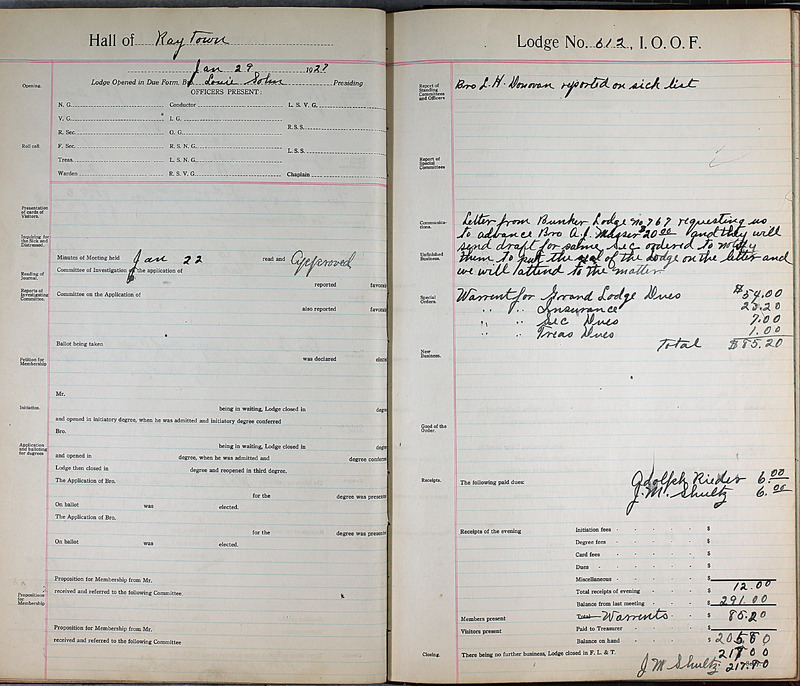 Hall of Raytown
Jan 29 1927
Lodge Opened in Due Form. Bro Louie Sohm Presiding
Opening.
OFFICERS PRESENT:
N. G. Conductor L. S. V. G.
V. G. I. G.
R. S. S.
R. Sec. O. G.
Roll call. F. Sec. R. S. N. G.
L. S. S.
Treas. L. S. N. G.
Warden R. S. V. G. Chaplain
Presentation of cards of Visitors.
Inquiring for the Sick and Distressed.
Minutes of Meeting held Jan 22 read and Approved
Reading of Journal.
Committee of Investigation of the application of
reported favora
Reports of Investigating Committee.
Committee on the Application of
also reported favora
Ballot being taken
was declared elect
Petition for Membership
Mr.
Initiation.
being in waiting, Lodge closed in degre
and opened in initiatory degree, when he was admitted and initiatory degree conferred
Bro.
Application and balloting for degrees
being in waiting, Lodge closed in degre
and opened in degree, when he was admitted and degree conferre
Lodge then closed in degree and reopened in third degree.
The Application of Bro.
for the degree was presente
On ballot was elected.
The Application of Bro.
for the degree was presente
On ballot was elected.
Proposition for Membership from Mr.
received and referred to the following Committee
Propositions for Membership
Proposition for Membership from Mr.
received and referred to the following Committee
Lodge No. 612, I. O. O. F.
Report of Standing Committees and Officers
Bro L. H. Donovan reported on sick list
Report of Special Committees
Communications.
Letter from Bunker Lodge No 767 requesting us
to advance Bro A. J. Musser $20.00 and they will
send draft for same, Sec ordered to notify
Unfinished Business.
them to put the seal of the Lodge on the letter and
we will attend to the matter
Special Orders.
Warrent for Grand Lodge Dues $54.00
" " Insurance 23.20
" " Sec Dues 7.00
" " Treas Dues 1.00
Total $85.20
New Business.
Good of the Order.
Receipts.
The following paid dues:
Adolph Rieder 6.00
J. M. Shultz 6.00
Receipts of the evening Initiation fees $
Degree fees $
Card fees $
Dues $
Miscellaneous $
Total receipts of evening $ 12.00
Balance from last meeting $ 291.00
Members present Total Warrents $ 85.20
Visitors present Paid to Treasurer $
Balance on hand $ 205.80
Closing.
There being no further business, Lodge closed in F. L. & T.
217.00
J M Shultz 217.80